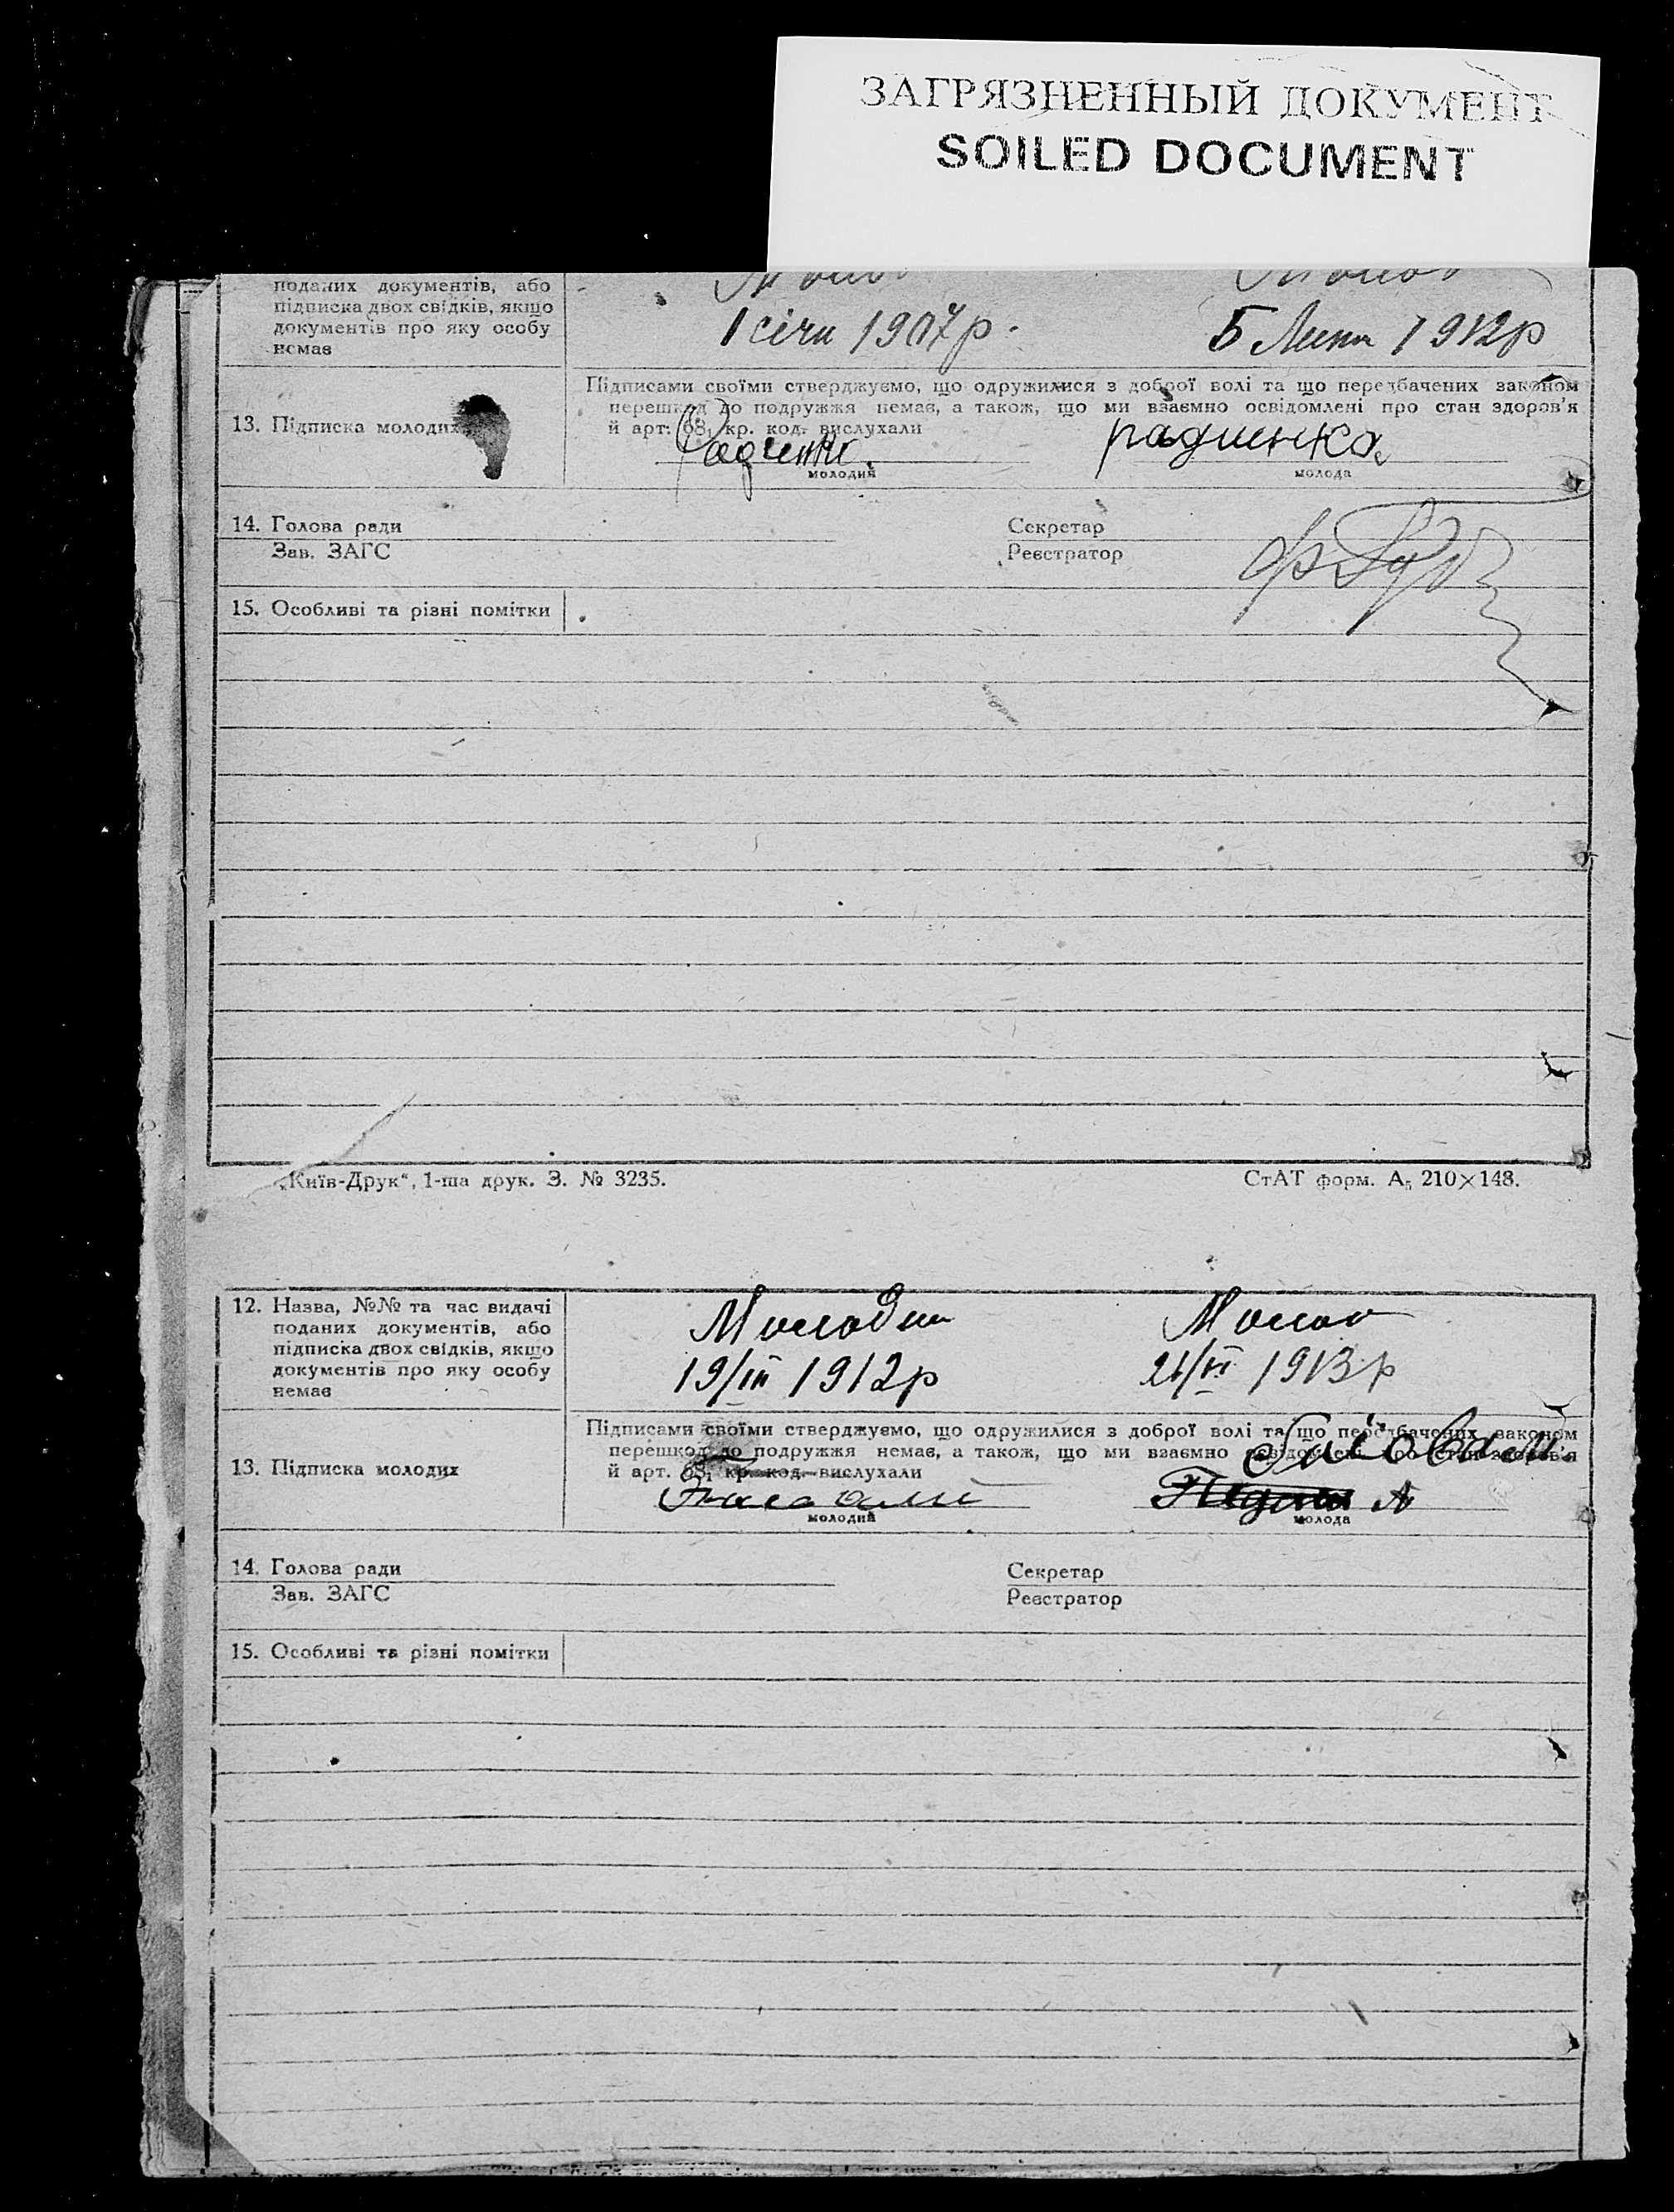 ЗАГРЯЗНЕННЫЙ ДОКУМЕНТ
SOILED DOCUMENT
поданих документів, або
підписка двох свідків, якщо
документів про яку особу
немає
1 січн 1907 р.
5 Липн 1912 р
Підписами своїми стверджуємо, що одружилися з доброї волі та що передбачених законом
перешкод до подружжя немає, а також, що ми взаємно освідомлені про стан здоров'я
й арт. 68₁ кр. код. вислухали
13. Підписка молодих
Радченко
радченко
молодий
молода
14. Голова ради
Секретар
Зав. ЗАГС
Реєстратор
15. Особливі та різні помітки
„Київ-Друк“, 1-ша друк. З. № 3235.
СтАТ форм. А₅ 210×148.
12. Назва, №№ та час видачі
поданих документів, або
підписка двох свідків, якщо
документів про яку особу
немає
19/III 1912 р
1913 р
Підписами своїми стверджуємо, що одружилися з доброї волі та що передбачених законом
перешкод до подружжя немає, а також, що ми взаємно освідомлені про стан здоров'я
й арт. 68₁ кр. код. вислухали
13. Підписка молодих
молодий
молода
14. Голова ради
Секретар
Зав. ЗАГС
Реєстратор
15. Особливі та різні помітки